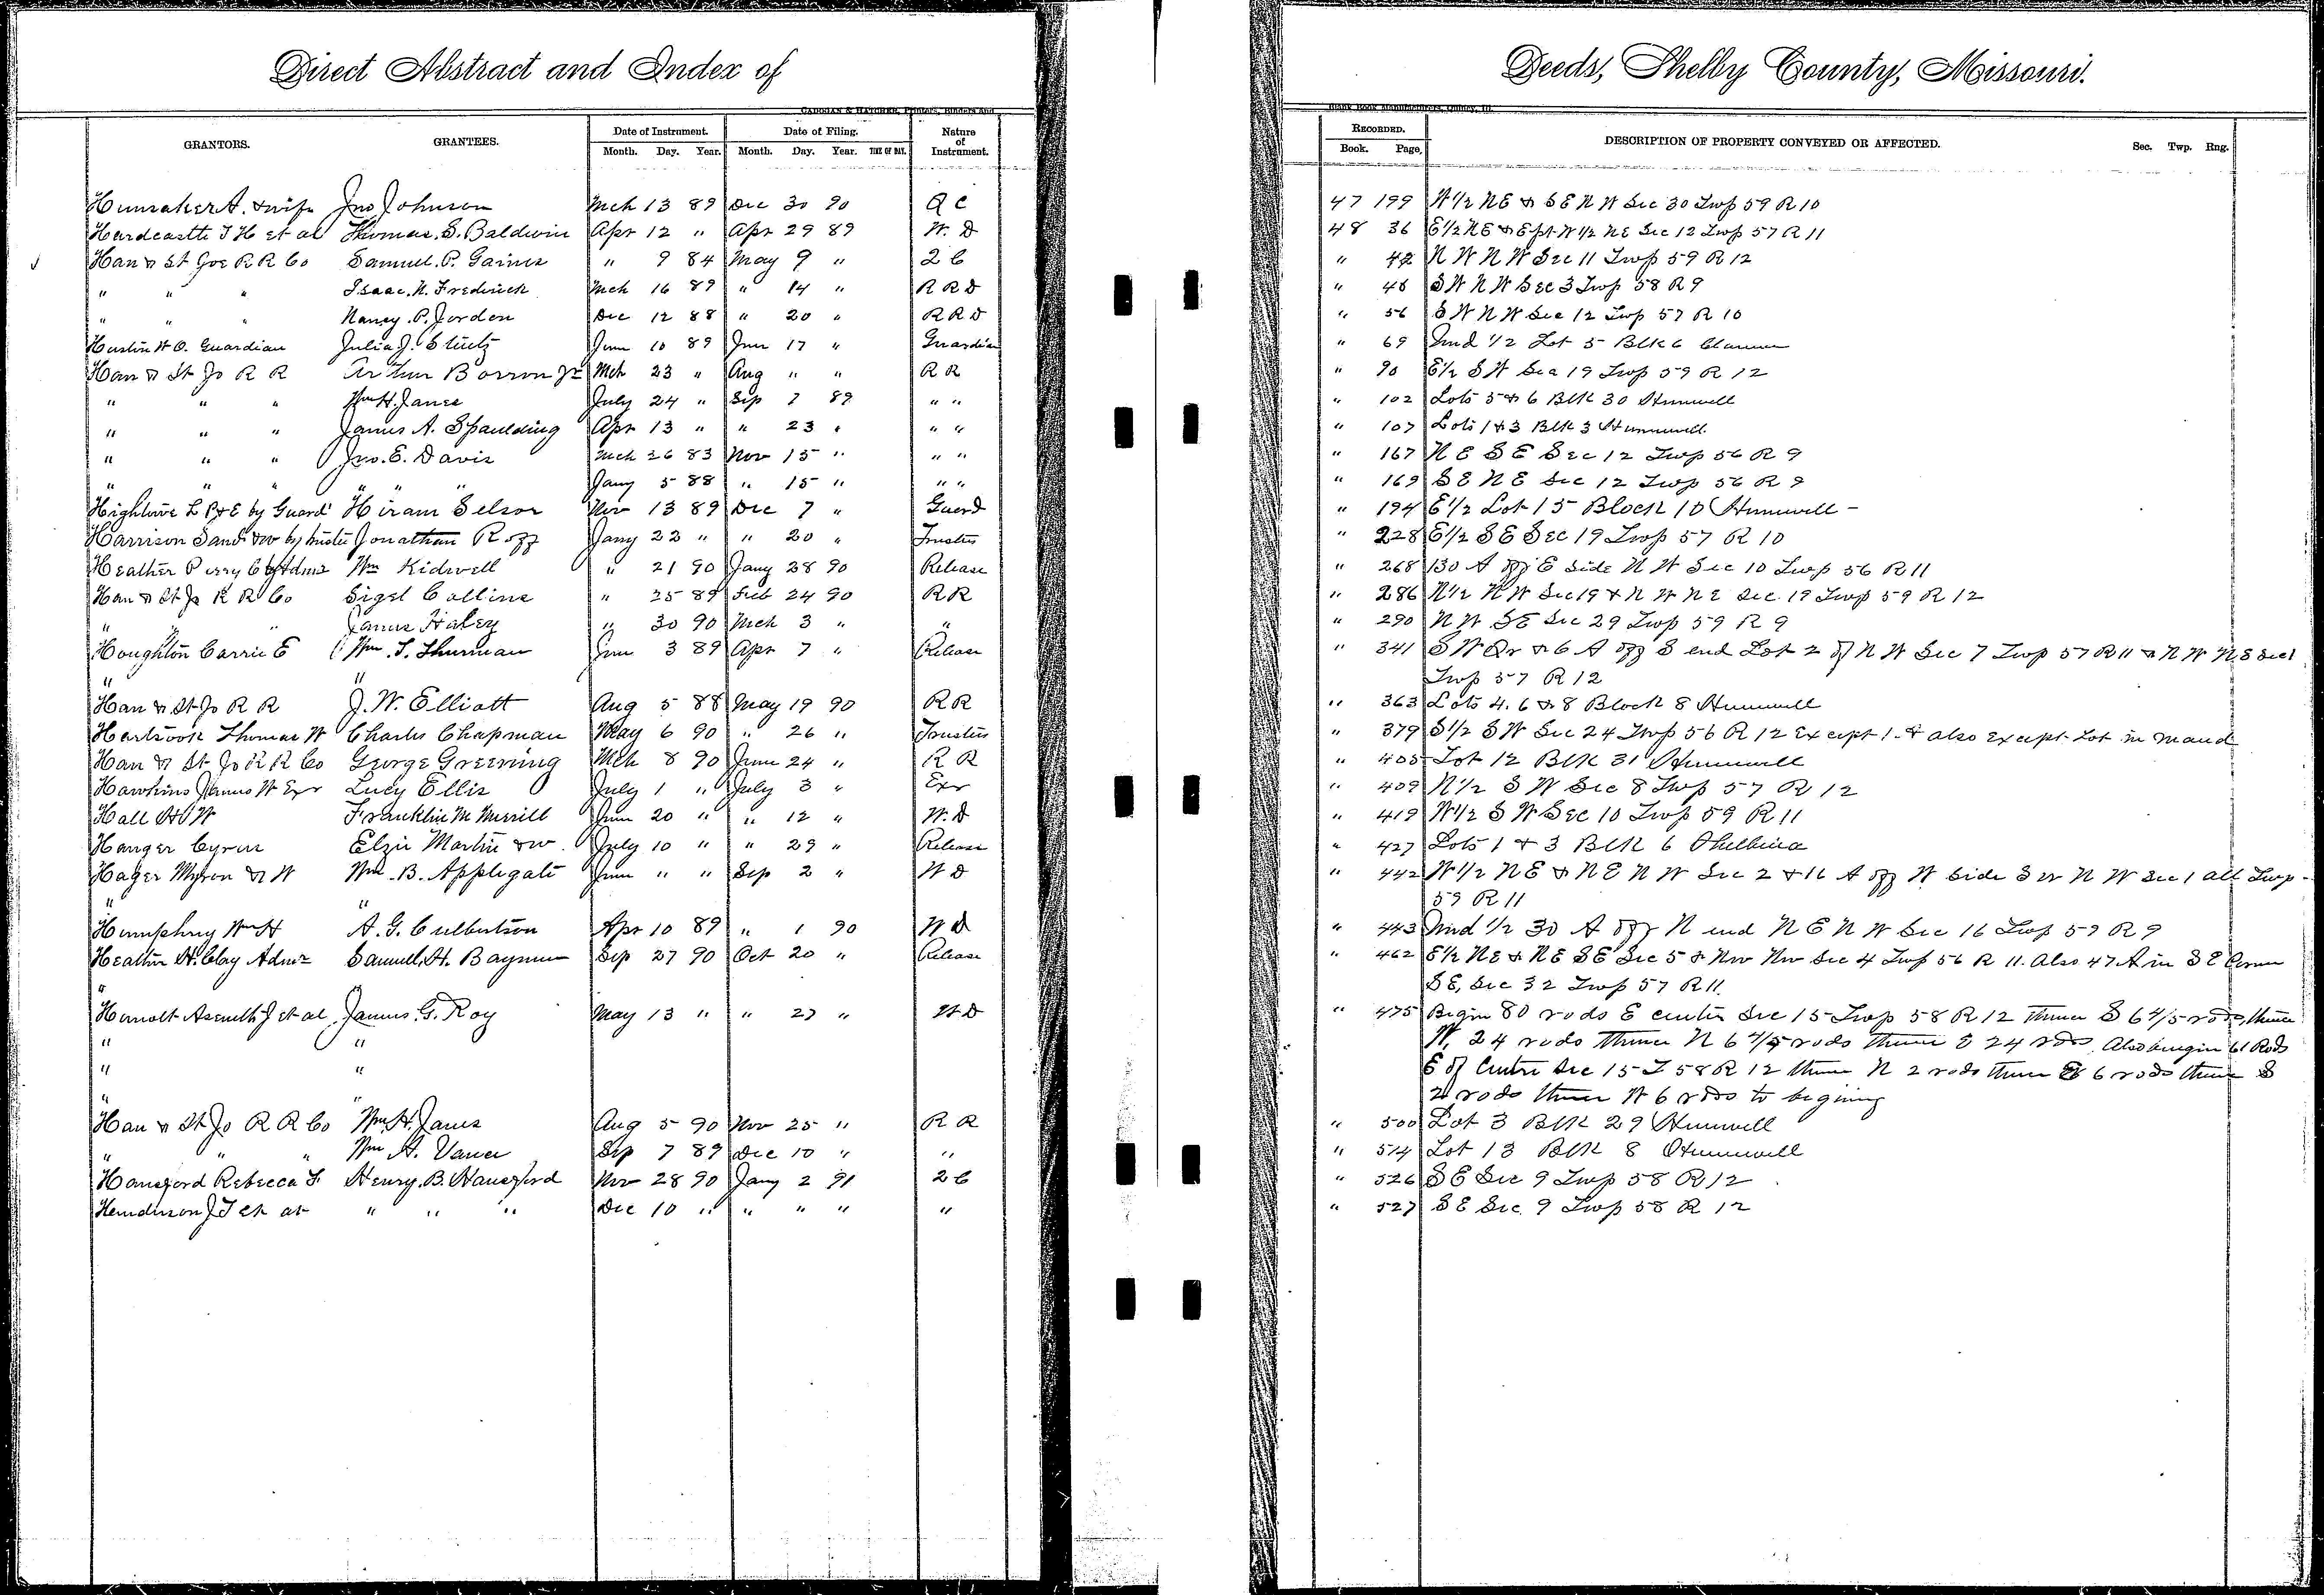 Direct Abstract and Index of
Deeds, Shelby County, Missouri.
CADOGAN & HATCHER, Printers, Binders and
Blank Book Manufacturers, Quincy, Ill.
GRANTORS. GRANTEES. Date of Instrument. Date of Filing. Nature of Instrument. RECORDED. DESCRIPTION OF PROPERTY CONVEYED OR AFFECTED. Sec. Twp. Rng.
Month. Day. Year. Month. Day. Year. TIME OF DAY. Book. Page,
Hunsaker A. & wife Jno Johnson Mch 13 89 Dec 30 90 Q C 47 199 W 1/2 NE & S E N W Sec 30 Twp 59 R 10
Hardcastle J H et al Thomas. S. Baldwin Apr 12 " Apr 29 89 W. D 48 36 E 1/2 NE & E pt W 1/2 NE Sec 12 Twp 57 R 11
Han & St Joe R R Co Samuel. P. Gaines " 9 84 May 9 " 2 C " 42 N W N W Sec 11 Twp 59 R 12
" " " Isaac. N. Fredrick Mch 16 89 " 14 " R R D " 46 S W N W Sec 3 Twp 58 R 9
" " " Nancy. P. Jorden Dec 12 88 " 20 " R R D " 56 S W N W Sec 12 Twp 57 R 10
W O. Guardian Julia J. June 10 89 June 17 " Guardian " 69 Und 1/2 Lot 5 Blk 6 Clarence
Han & St Jo R R Arthur Borron Jr Mch 23 " Aug " " R R " 90 E 1/2 S W Sec 19 Twp 59 R 12
" " " Wm H. Janes July 24 " Sep 7 89 " " " 102 Lots 5 & 6 Blk 30 Hunnewell
" " " James A. Spaulding Apr 13 " " 23 " " " " 107 Lots 1 & 3 Blk 3 Hunnewell
" " " Jno. E. Davis Mch 26 83 Nov 15 " " " " 167 N E S E Sec 12 Twp 56 R 9
" " " " " " Jany 5 88 " 15 " " " " 169 S E N E Sec 12 Twp 56 R 9
Hightowe L B & E by Guard Hiram Selsor Nov 13 89 Dec 7 " Guard " 194 E 1/2 Lot 15 Block 10 Hunnewell -
Harrison Saml & w by trustee Jonathan Roff Jany 22 " " 20 " Trustees " 228 E 1/2 S E Sec 19 Twp 57 R 10
Heather Perry C by Admr Wm Kidwell " 21 90 Jany 28 90 Release " 268 130 A off E side N W Sec 10 Twp 56 R 11
Han & St Jo R R Co Sigel Collins " 25 89 Feb 24 90 R R " 286 N 1/2 N W Sec 19 & N W N E Sec. 19 Twp 59 R 12
" " " James Haley " 30 90 Mch 3 " " " 290 N W S E Sec 29 Twp 59 R 9
Houghton Carrie E Wm. T. Thurman June 3 89 Apr 7 " Release " 341 S W Qr & 6 A off S end Lot 2 of N W Sec 7 Twp 57 R 11 & N W N E Sec 1
" " Twp 57 R 12
Han & St Jo R R J. W. Elliott Aug 5 88 May 19 90 R R " 363 Lots 4. 6 & 8 Block 8 Hunnewell
Hartsook Thomas W Charles Chapman May 6 90 " 26 " Trustees " 379 S 1/2 S W Sec 24 Twp 56 R 12 Except 1. & also Except Lot in Maud
Han & St Jo R R Co George Greening Mch 8 90 June 24 " R R " 405 Lot 12 Blk 31 Hunnewell
Hawkins James W Exr Lucy Ellis July 1 " July 3 " Exr " 409 N 1/2 S W Sec 8 Twp 57 R 12
Hall H W Franklin M Merrill June 20 " " 12 " W. D " 419 W 1/2 S W Sec 10 Twp 59 R 11
Hanger Cyrus Elzie Martin & w. July 10 " " 29 " Release " 427 Lots 1 & 3 Blk 6 Shelbina
Hager Myron & W Wm. B. Applegate June " " Sep 2 " W D " 442 W 1/2 N E & N E N W Sec 2 & 16 A off W side S W N W Sec 1 all Twp
" " 59 R 11
Humphrey Wm H A. G. Culbertson Apr 10 89 " 1 90 W D " 443 Und 1/2 30 A off N end N E N W Sec 16 Twp 59 R 9
Heather H. Clay Admr Samuel. H. Baynum Sep 27 90 Oct 20 " Release " 462 E 1/2 N E & N E S E Sec 5 & Nw Nw Sec 4 Twp 56 R 11. Also 47 A in S E Corner
" S E, Sec 32 Twp 57 R 11.
Aseneth J et al James. G. Roy May 13 " " 27 " W D " 475 Begin 80 rods E center Sec 15 Twp 58 R 12 thence S 6 4/5 rods, thence
" " W. 24 rods thence N 6 4/5 rods thence E 24 rods. Also begin 61 Rods
" " E of Centre Sec 15 T 58 R 12 thence N 2 rods thence E 6 rods thence S
" " 2 rods thence W 6 rods to begining
Han & St Jo R R Co Wm. H. Janes Aug 5 90 Nov 25 " R R " 500 Lot 3 Blk 29 Hunnewell
" " " Wm H. Vance Sep 7 89 Dec 10 " " " 514 Lot 13 Blk 8 Hunnewell
Hansford Rebecca F Henry. B. Hansford Nov 28 90 Jany 2 91 2 C " 526 S E Sec 9 Twp 58 R 12
Henderson J T et al " " " Dec 10 " " " " " " 527 S E Sec. 9 Twp 58 R 12